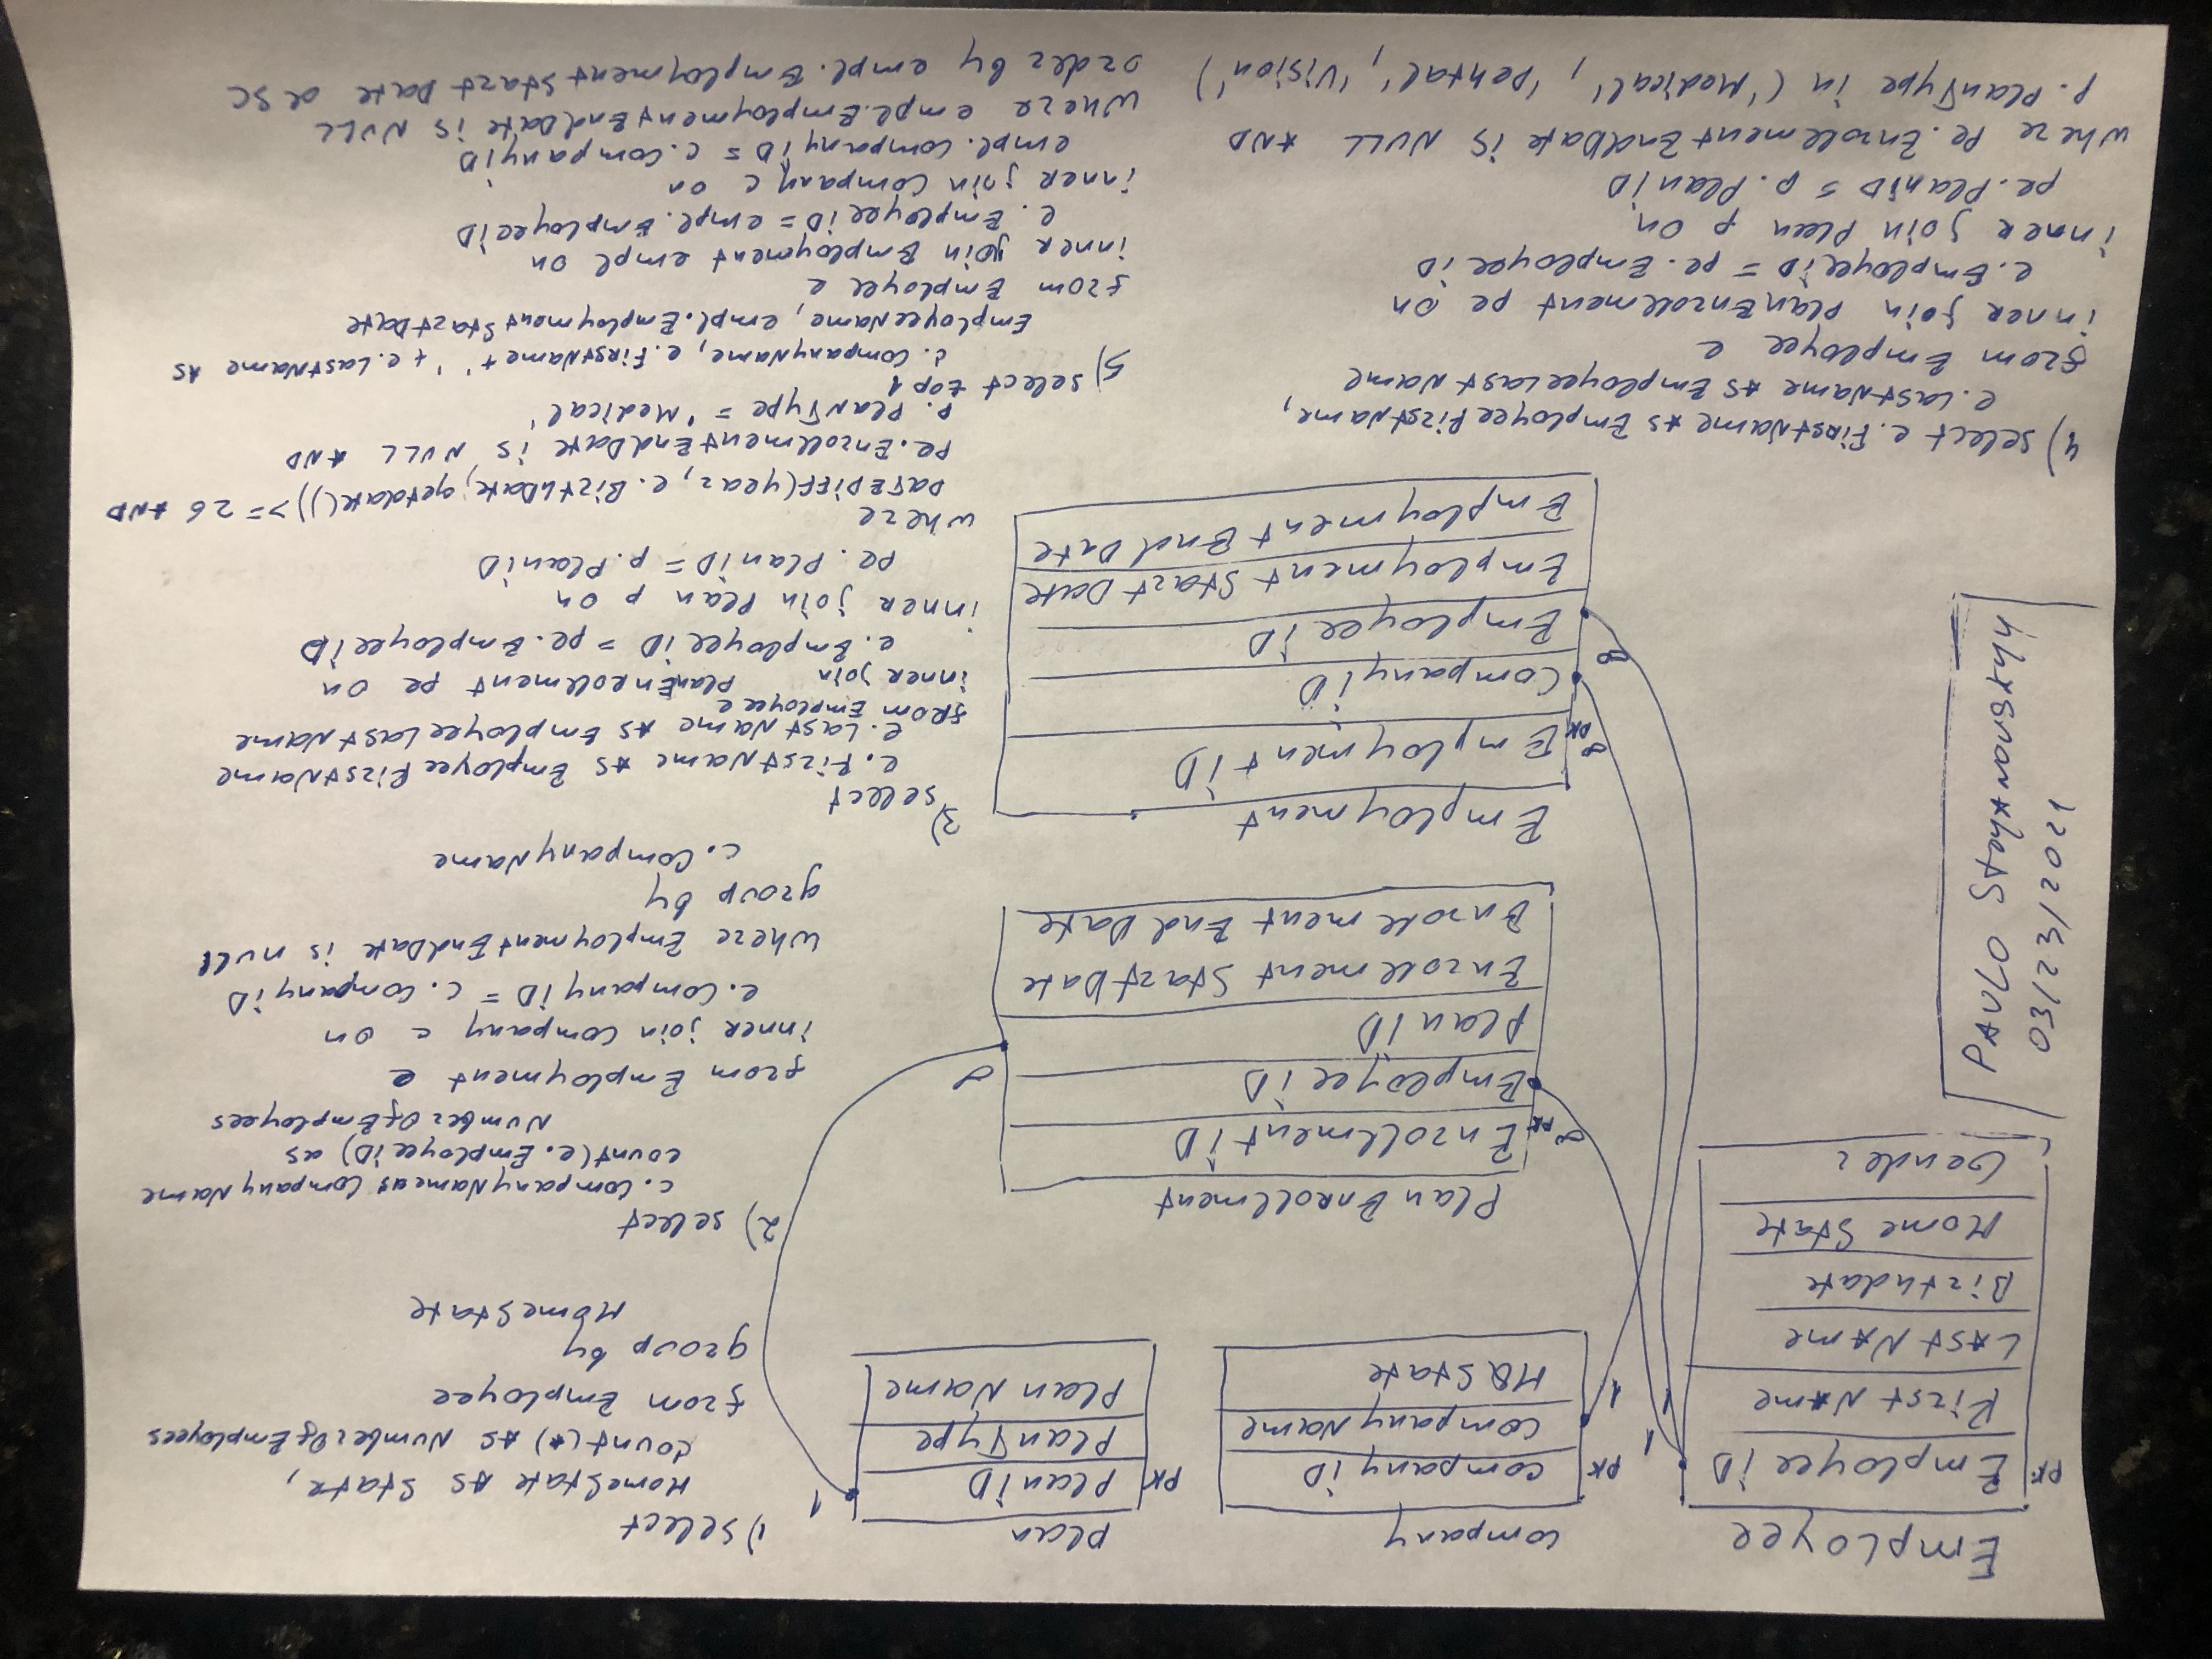 Employee
PK EmployeeiD
First NAme
LAst NAme
Birthdate
Home State
Gender
company
PK companyiD
companyName
HQState
1
1
1
Plan
PK PlaniD
PlanType
Plan Name
1
Plan Enrollment
∞ PK EnrollmentiD
EmployeeiD
PlaniD
Enrollment Start Date
Enrollment End Date
∞
Employment
∞ PK EmploymentiD
CompanyiD
∞ EmployeeiD
Employment Start Date
Employment End Date
PAVLO StoyANOVSKYY
03/23/2021
1) select
HomeState AS State,
count(*) AS NumberOfEmployees
from Employee
group by
HomeState
2) select
c.CompanyName as CompanyName
count(e.EmployeeiD) as
NumberOfEmployees
from Employment e
inner join Company c on
e.CompanyiD = c.CompanyiD
where EmploymentEndDate is null
group by
c.CompanyName
3) select
e.FirstName AS EmployeeFirstName
e.LastName AS EmployeeLastName
from Employee e
inner join PlanEnrollment pe on
e.EmployeeiD = pe.EmployeeiD
inner join Plan p on
pe.PlaniD = p.PlaniD
where
DATEDiFF(year, e.BirthDate, getdate()) >= 26 AND
pe.EnrollmentEndDate is NULL AND
p.PlanType = 'Medical'
4) select e.FirstName AS EmployeeFirstName,
e.LastName AS EmployeeLastName
from Employee e
inner join PlanEnrollment pe on
e.EmployeeiD = pe.EmployeeiD
inner join Plan p on
pe.PlaniD = p.PlaniD
where pe.EnrollmentEndDate is NULL AND
p.PlanType in ('Medical', 'Dental', 'Vision')
5) select top 1
c.CompanyName, e.FirstName + ' ' + e.LastName AS
EmployeeName, empl.EmploymentStartDate
from Employee e
inner join Employment empl on
e.EmployeeiD = empl.EmployeeiD
inner join Company c on
empl.CompanyiD = c.CompanyiD
where empl.EmploymentEndDate is NULL
order by empl.EmploymentStartDate dSC